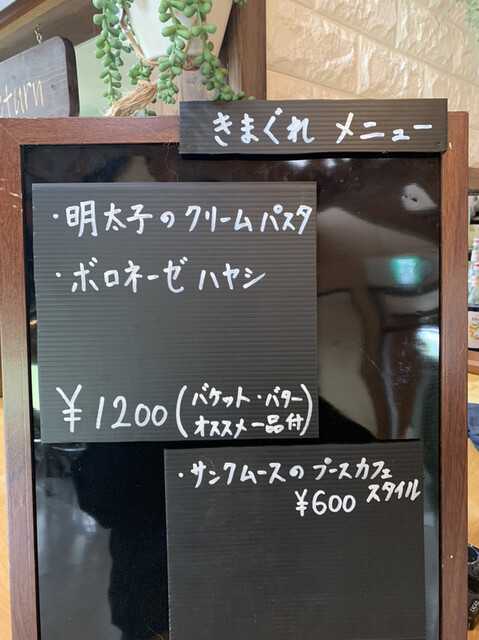 turn
きまぐれ メニュー
・明太子のクリームパスタ
・ボロネーゼ ハヤシ
¥1200(バケット・バター
オススメ一品付)
・サンクムースのブースカフェ
スタイル
¥600